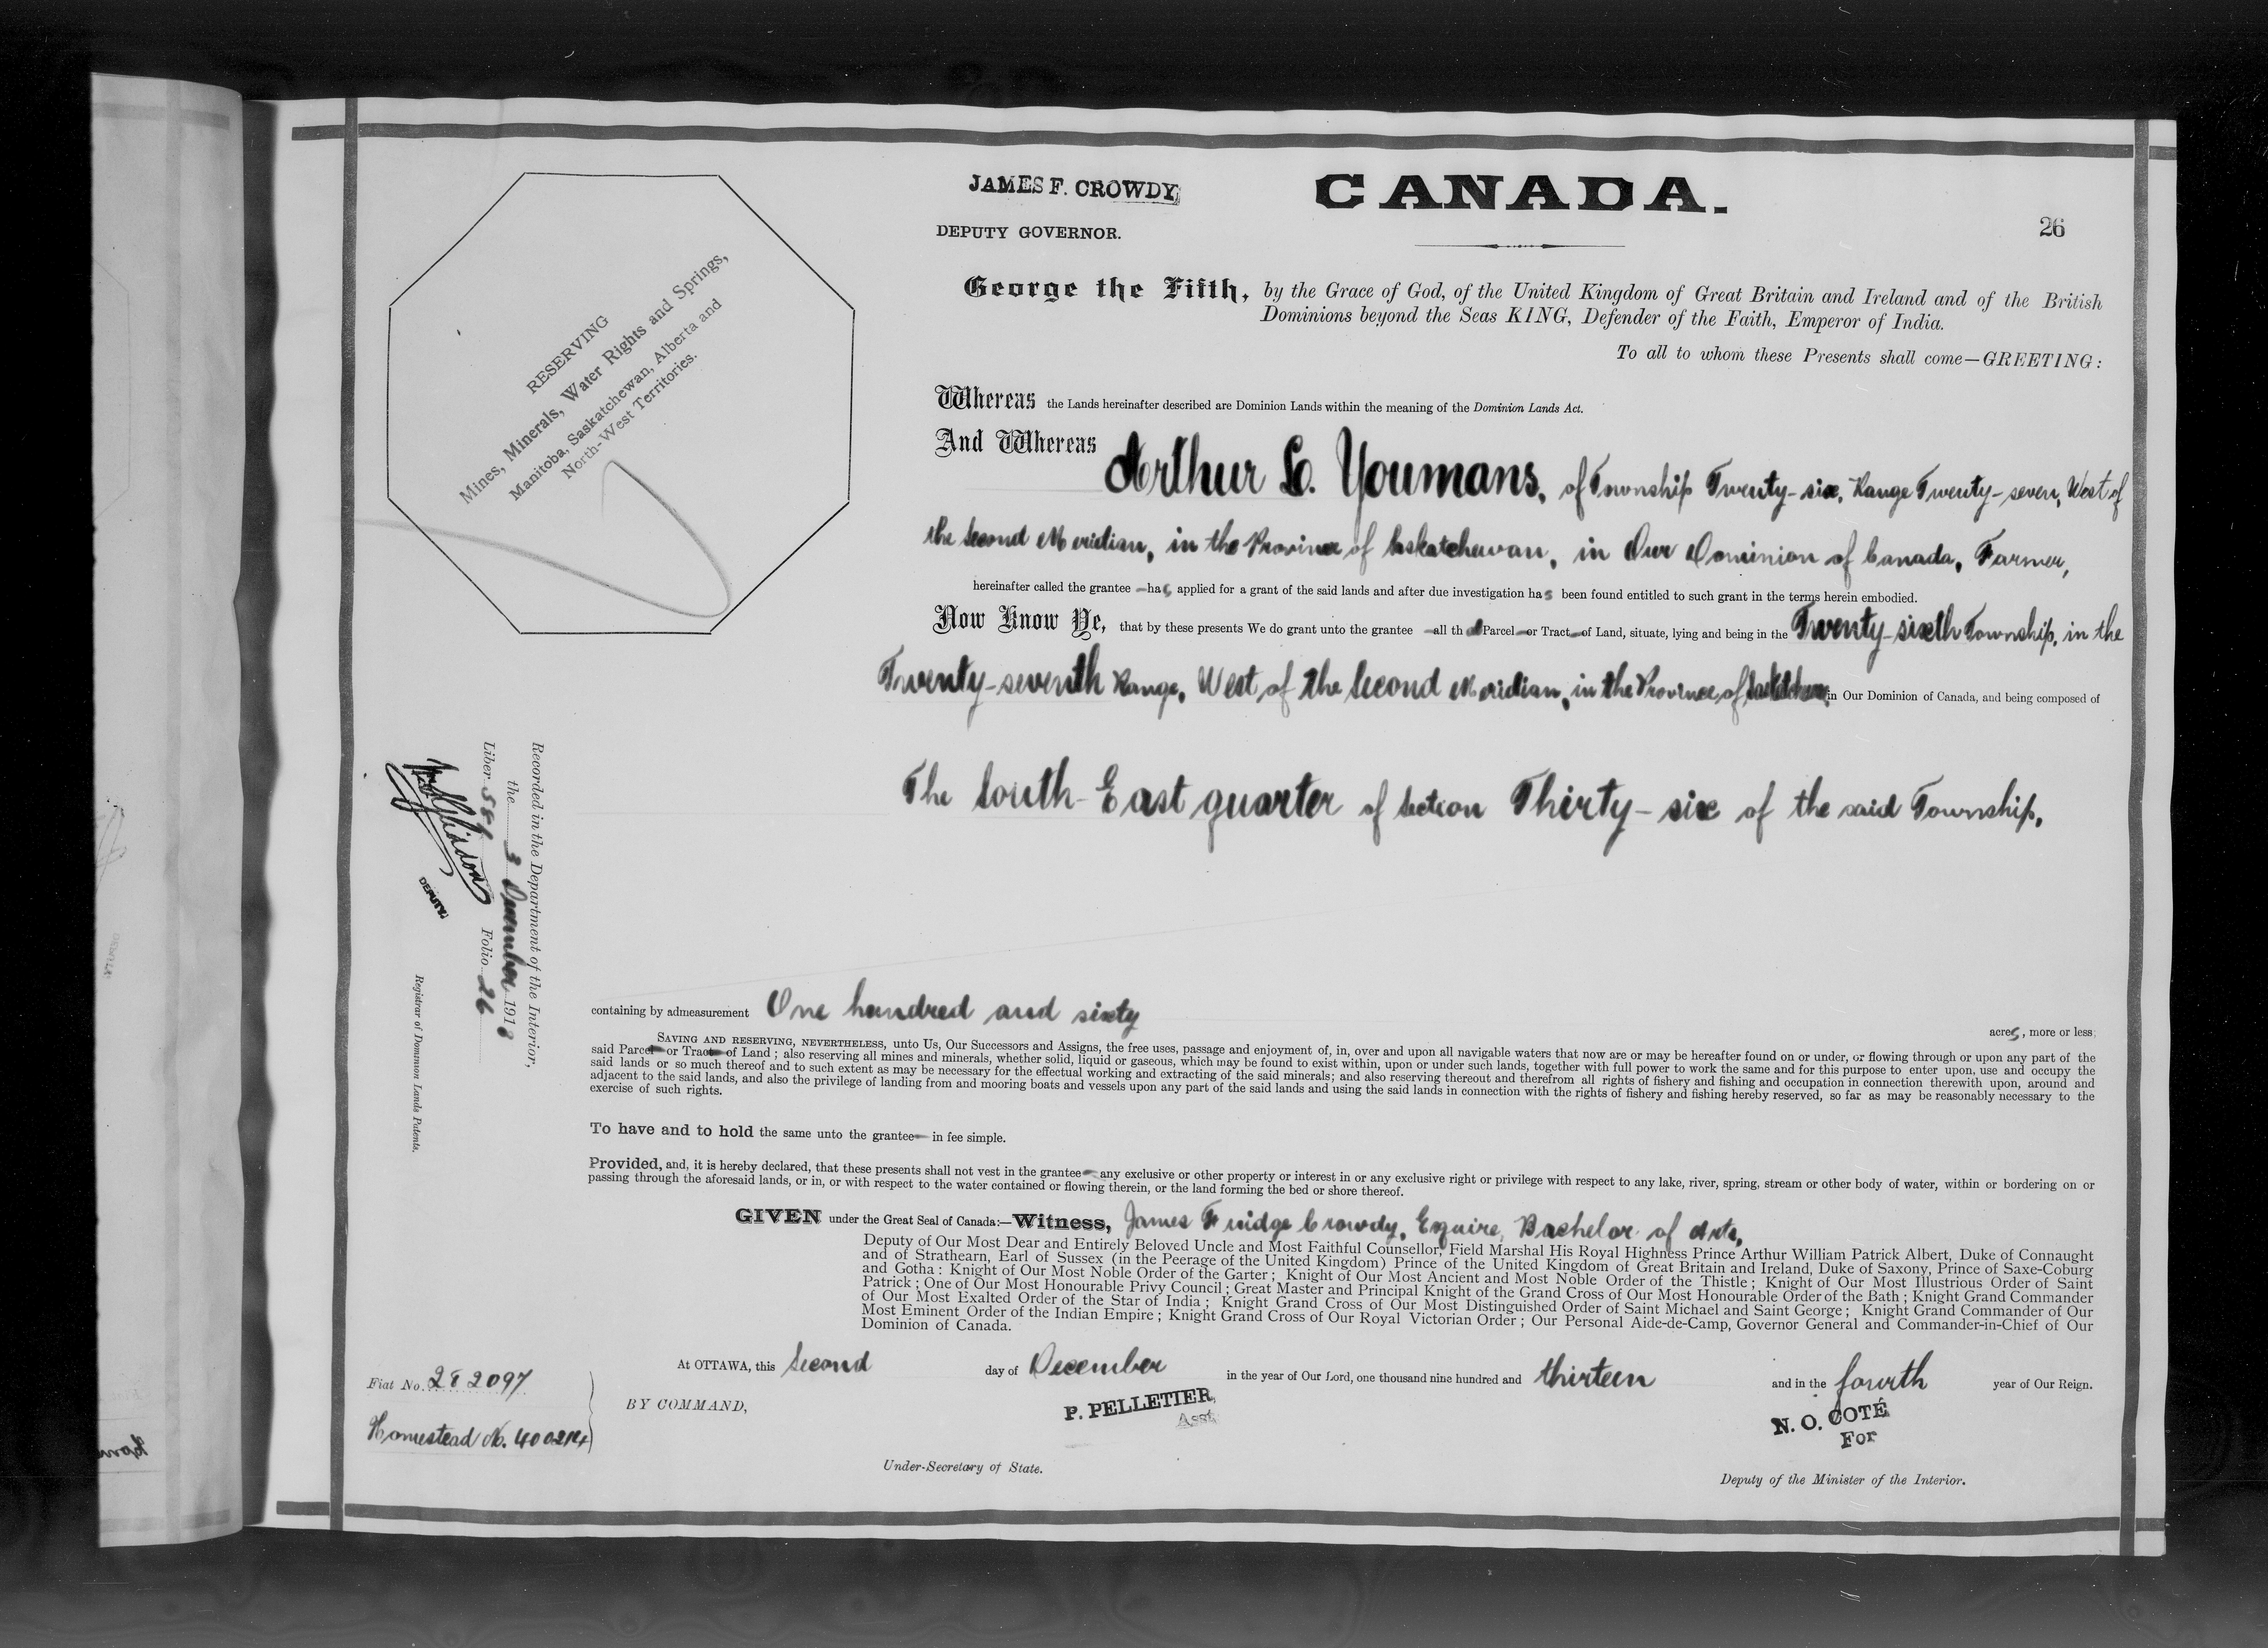 JAMES F. CROWDY,
CANADA.
DEPUTY GOVERNOR.
26
RESERVING
Mines, Minerals, Water Rights and Springs,
Manitoba, Saskatchewan, Alberta and
North-West Territories.
George the Fifth, by the Grace of God, of the United Kingdom of Great Britain and Ireland and of the British
Dominions beyond the Seas KING, Defender of the Faith, Emperor of India.
To all to whom these Presents shall come—GREETING:
Whereas the Lands hereinafter described are Dominion Lands within the meaning of the Dominion Lands Act.
And Whereas Arthur L. Youmans, of Township Twenty-six, Range Twenty-seven, West of
the Second Meridian, in the Province of Saskatchewan, in Our Dominion of Canada, Farmer,
hereinafter called the grantee — has applied for a grant of the said lands and after due investigation has been found entitled to such grant in the terms herein embodied.
Now Know Ye, that by these presents We do grant unto the grantee — all that Parcel — or Tract — of Land, situate, lying and being in the Twenty-sixth Township, in the
Twenty-seventh Range, West of the Second Meridian, in the Province of Saskatchewan, in Our Dominion of Canada, and being composed of
The South-East quarter of Section Thirty-six of the said Township,
Recorded in the Department of the Interior,
the 3 December 1913
Liber 589 Folio 26
DEPUTY
Registrar of Dominion Lands Patents.
containing by admeasurement One hundred and sixty acres, more or less;
SAVING AND RESERVING, NEVERTHELESS, unto Us, Our Successors and Assigns, the free uses, passage and enjoyment of, in, over and upon all navigable waters that now are or may be hereafter found on or under, or flowing through or upon any part of the
said Parcel — or Tract — of Land; also reserving all mines and minerals, whether solid, liquid or gaseous, which may be found to exist within, upon or under such lands, together with full power to work the same and for this purpose to enter upon, use and occupy the
said lands or so much thereof and to such extent as may be necessary for the effectual working and extracting of the said minerals; and also reserving thereout and therefrom all rights of fishery and fishing and occupation in connection therewith upon, around and
adjacent to the said lands, and also the privilege of landing from and mooring boats and vessels upon any part of the said lands and using the said lands in connection with the rights of fishery and fishing hereby reserved, so far as may be reasonably necessary to the
exercise of such rights.
To have and to hold the same unto the grantee — in fee simple.
Provided, and, it is hereby declared, that these presents shall not vest in the grantee — any exclusive or other property or interest in or any exclusive right or privilege with respect to any lake, river, spring, stream or other body of water, within or bordering on or
passing through the aforesaid lands, or in, or with respect to the water contained or flowing therein, or the land forming the bed or shore thereof.
GIVEN under the Great Seal of Canada:—Witness, James Fruidge Crowdy, Esquire, Bachelor of Arts,
Deputy of Our Most Dear and Entirely Beloved Uncle and Most Faithful Counsellor, Field Marshal His Royal Highness Prince Arthur William Patrick Albert, Duke of Connaught
and of Strathearn, Earl of Sussex (in the Peerage of the United Kingdom) Prince of the United Kingdom of Great Britain and Ireland, Duke of Saxony, Prince of Saxe-Coburg
and Gotha: Knight of Our Most Noble Order of the Garter; Knight of Our Most Ancient and Most Noble Order of the Thistle; Knight of Our Most Illustrious Order of Saint
Patrick; One of Our Most Honourable Privy Council; Great Master and Principal Knight of the Grand Cross of Our Most Honourable Order of the Bath; Knight Grand Commander
of Our Most Exalted Order of the Star of India; Knight Grand Cross of Our Most Distinguished Order of Saint Michael and Saint George; Knight Grand Commander of Our
Most Eminent Order of the Indian Empire; Knight Grand Cross of Our Royal Victorian Order; Our Personal Aide-de-Camp, Governor General and Commander-in-Chief of Our
Dominion of Canada.
At OTTAWA, this Second day of December in the year of Our Lord, one thousand nine hundred and thirteen and in the fourth year of Our Reign.
Fiat No. 282097
BY COMMAND,
P. PELLETIER,
Asst
N. O. COTÉ
For
Homestead No.
Under-Secretary of State.
Deputy of the Minister of the Interior.